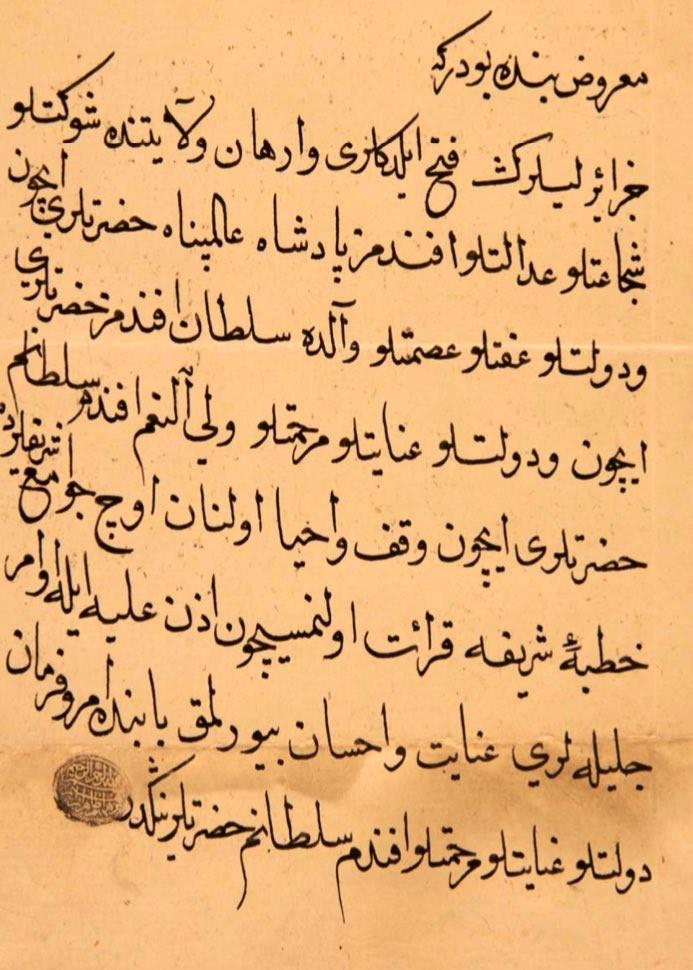 معروض بنده بودركه
جزائر ليلرك فتح ايلدكلرى وارهان ولايتنده شوكتلو
شجاعتلو عدالتلو افندمز پادشاه عالمپناه حضرتلري ايچون
ودولتلو عفتلو عصمتلو والده سلطان افندمز حضرتلري
ايچون ودولتلو عنايتلو مرحمتلو ولي النعم افندم سلطانم
حضرتلرى ايچون وقف واحيا اولنان اوچ جوامع شريفلرده
خطبهٔ شريفه قرائت اولنمسيچون اذن عليه ايله اوامر
جليله لري عنايت واحسان بيورلمق بابنده امر وفرمان
دولتلو عنايتلو مرحمتلو افندم سلطانم حضرتلرينكدر